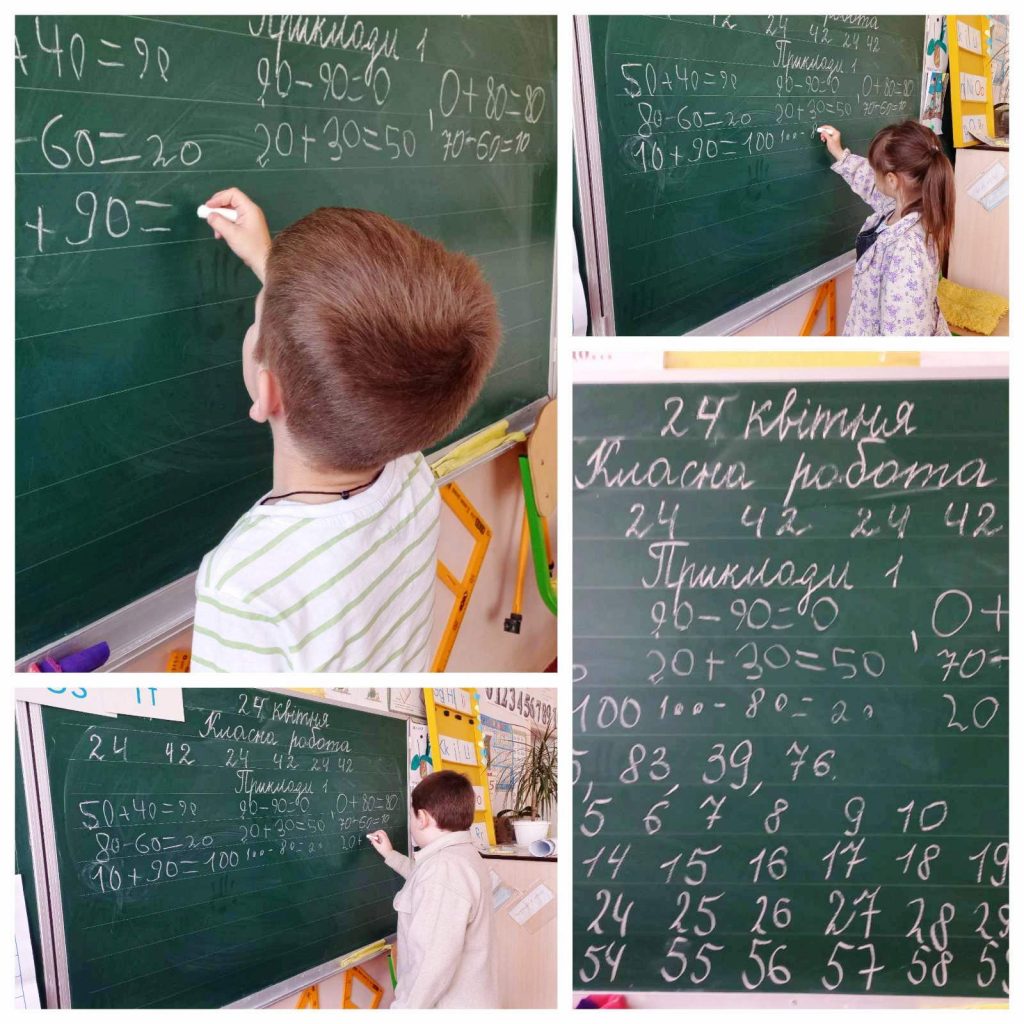 +40=90
-60=20
+90=
Приклади 1
90-90=0
20+30=50
0+80=80
70-60=10
24 42 24 42
Приклади 1
50+40=90 90-90=0 0+80=80
80-60=20 20+30=50 70-60=10
10+90=100 100-
24 квітня
Класна робота
24 42 24 42 24 42
Приклади 1
50+40=90 90-90=0 0+80=80
80-60=20 20+30=50 70-60=10
10+90=100 100-80=20 20+
24 квітня
Класна робота
24 42 24 42
Приклади 1
90-90=0 0+
20+30=50 70-
100 100-80=20 20
, 83, 39, 76.
5 6 7 8 9 10
14 15 16 17 18 19
24 25 26 27 28 29
54 55 56 57 58 5